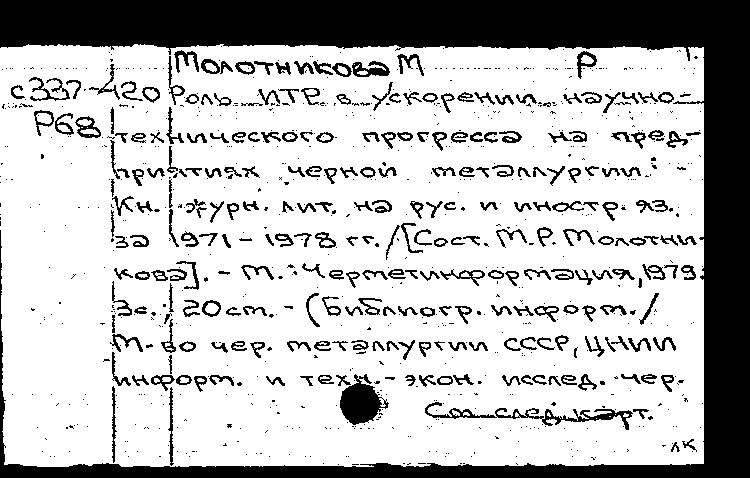 Молотникова М Р 1.
с337-420 Роль ИТР в ускорении научно-
Р68 технического прогресса на пред-
приятиях черной металлургии: -
Кн. журн. лит. на рус. и иностр. яз.
за 1971-1978 гг. /[Сост. М.Р. Молотни-
кова]. - М.: Черметинформация, 1979.
3с.; 20см. - (Библиогр. информ. /
М-во чер. металлургии СССР, ЦНИИ
информ. и техн.-экон. исслед. чер.
См след. карт.
ЛК